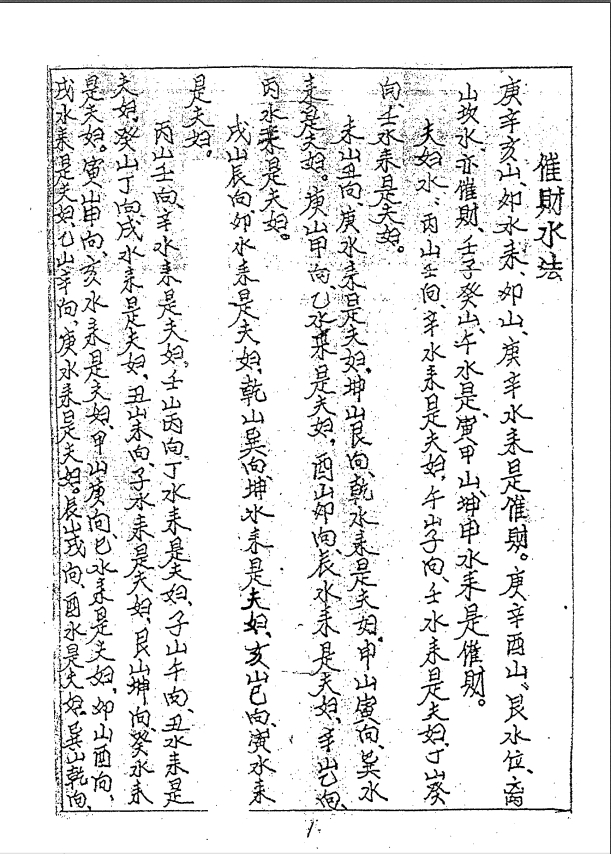 催財水法
庚辛亥山、卯水来、卯山、庚辛水来是催財。庚辛酉山、艮水位、离
山坎水亦催財、壬子癸山、午水是、寅甲山、坤申水来是催財。
夫妇水：丙山壬向、辛水来是夫妇，午山子向、壬水来是夫妇、丁山癸
向、壬水来是夫妇。
未山丑向、庚水来是夫妇，坤山艮向、乾水来是夫妇，申山寅向、巽水
来是夫妇。庚山甲向、乙水来是夫妇，酉山卯向、辰水来是夫妇、辛山乙向、
丙水来是夫妇。
戌山辰向卯水来是夫妇，乾山巽向、坤水来是夫妇、亥山巳向、寅水来
是夫妇。
丙山壬向、辛水来是夫妇，壬山丙向、丁水来是夫妇、子山午向、丑水来是
夫妇、癸山丁向、戌水来是夫妇，丑山未向、子水来是夫妇、艮山坤向、癸水来
是夫妇。寅山申向、亥水来是夫妇、甲山庚向、巳水来是夫妇，卯山酉向、
戌水来是夫妇、乙山辛向、庚水来是夫妇。辰山戌向、酉水是夫妇、巽山乾向、
1